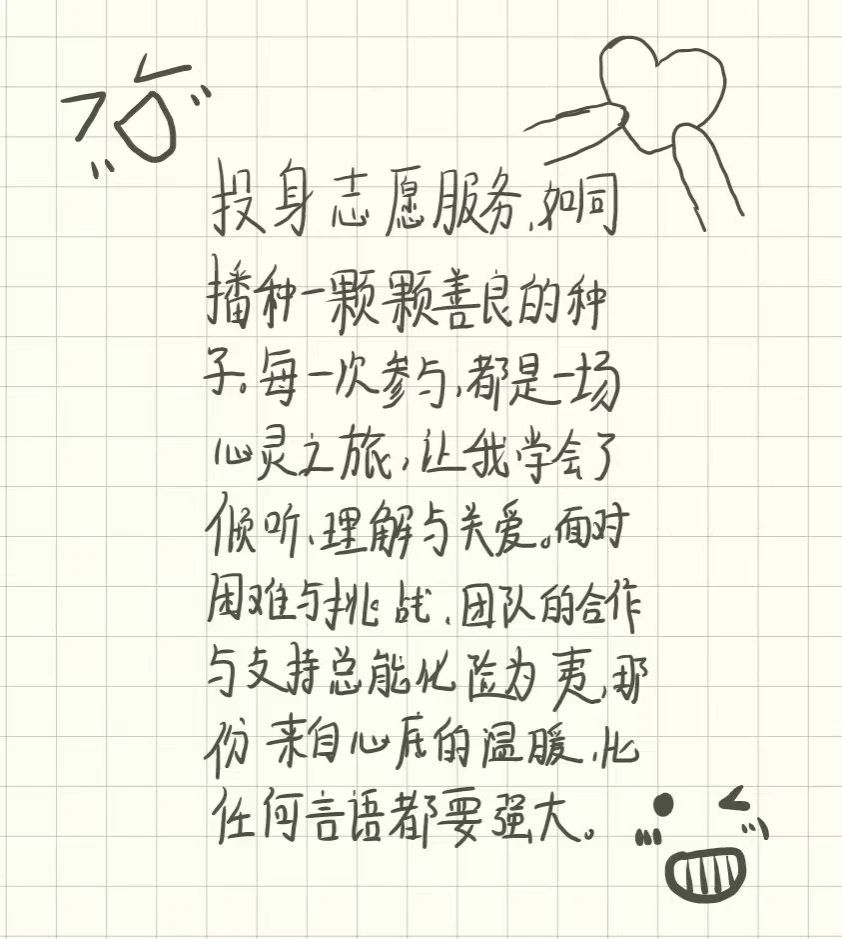 投身志愿服务,如同
播种一颗颗善良的种
子。每一次参与,都是一场
心灵之旅,让我学会了
倾听、理解与关爱。面对
困难与挑战,团队的合作
与支持总能化险为夷,那
份来自心底的温暖,比
任何言语都要强大。